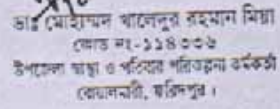 ডাঃ মোহাম্মদ খালেদুর রহমান মিয়া
কোড নং-১১৪০৩৬
উপজেলা স্বাস্থ্য ও পরিবার পরিকল্পনা কর্মকর্তা
বোয়ালমারী, ফরিদপুর।